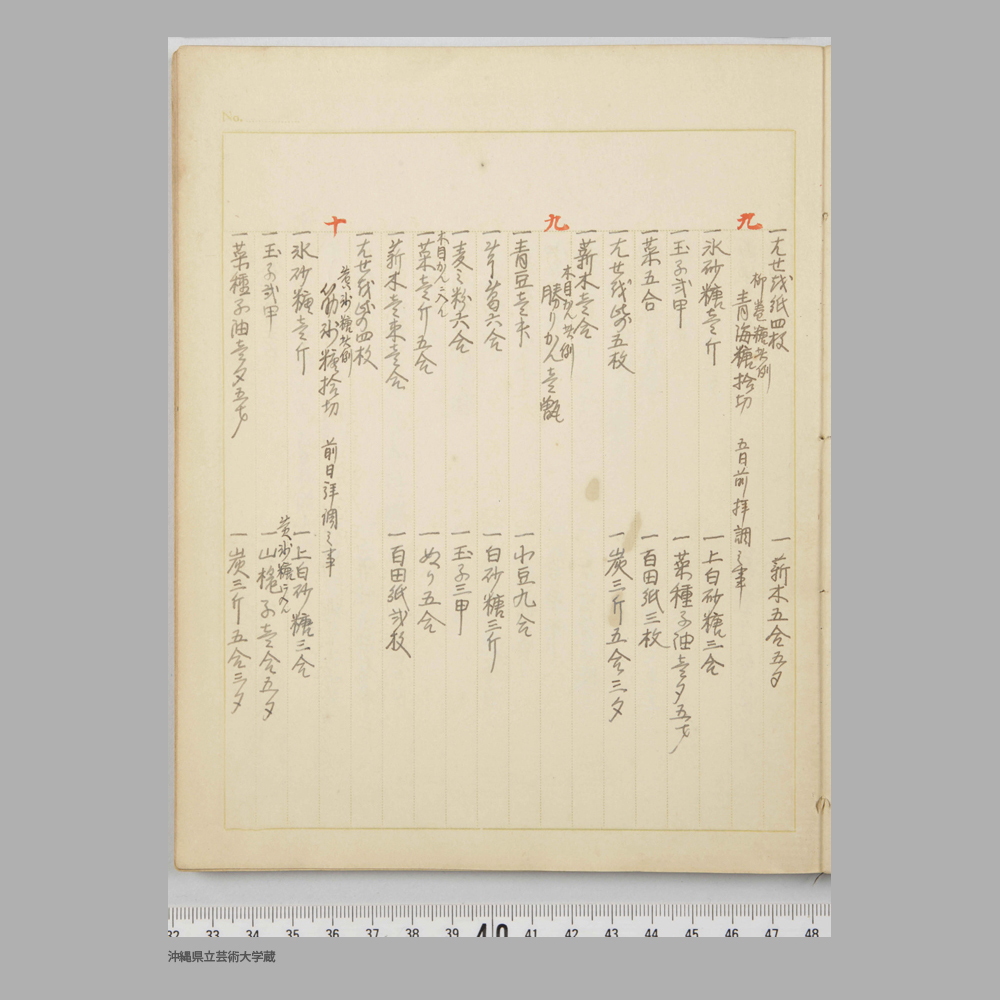 No.
一 尤せ㦮紙四枚
一 薪木五合五夕
九
柳巻糖共例
青海糖拾切 五日前拝調之事
一 氷砂糖壱斤
一 上白砂糖三合
一 玉子弐甲
一 菜種子油壱夕五才
一 菜五合
一 百田紙三枚
五枚
一 炭三斤五合三夕
一 薪木壱合
九
木目かん共例
勝りかん壱甑
一 青豆壱
一 小豆九合
六合
一 白砂糖三斤
一 麦之粉六合
一 玉子三甲
木目かん二入
一 菜壱斤五合
一 ぬり五合
一 薪木壱束壱合
一 百田紙弐枚
四枚
十
黄砂糖共例
砂糖拾切 前日拝調之事
一 氷砂糖壱斤
一 上白砂糖三合
黄砂糖二入
一 玉子弐甲
一 山梔子壱合五夕
一 菜種子油壱夕五才
一 炭三斤五合三夕
32 33 34 35 36 37 38 39 40 41 42 43 44 45 46 47 48
沖縄県立芸術大学蔵